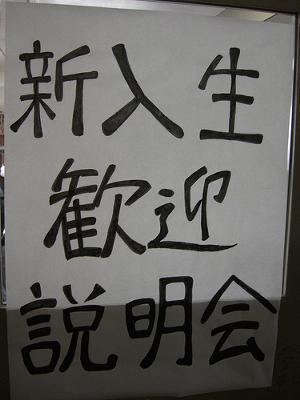 新入生
歓迎
説明会